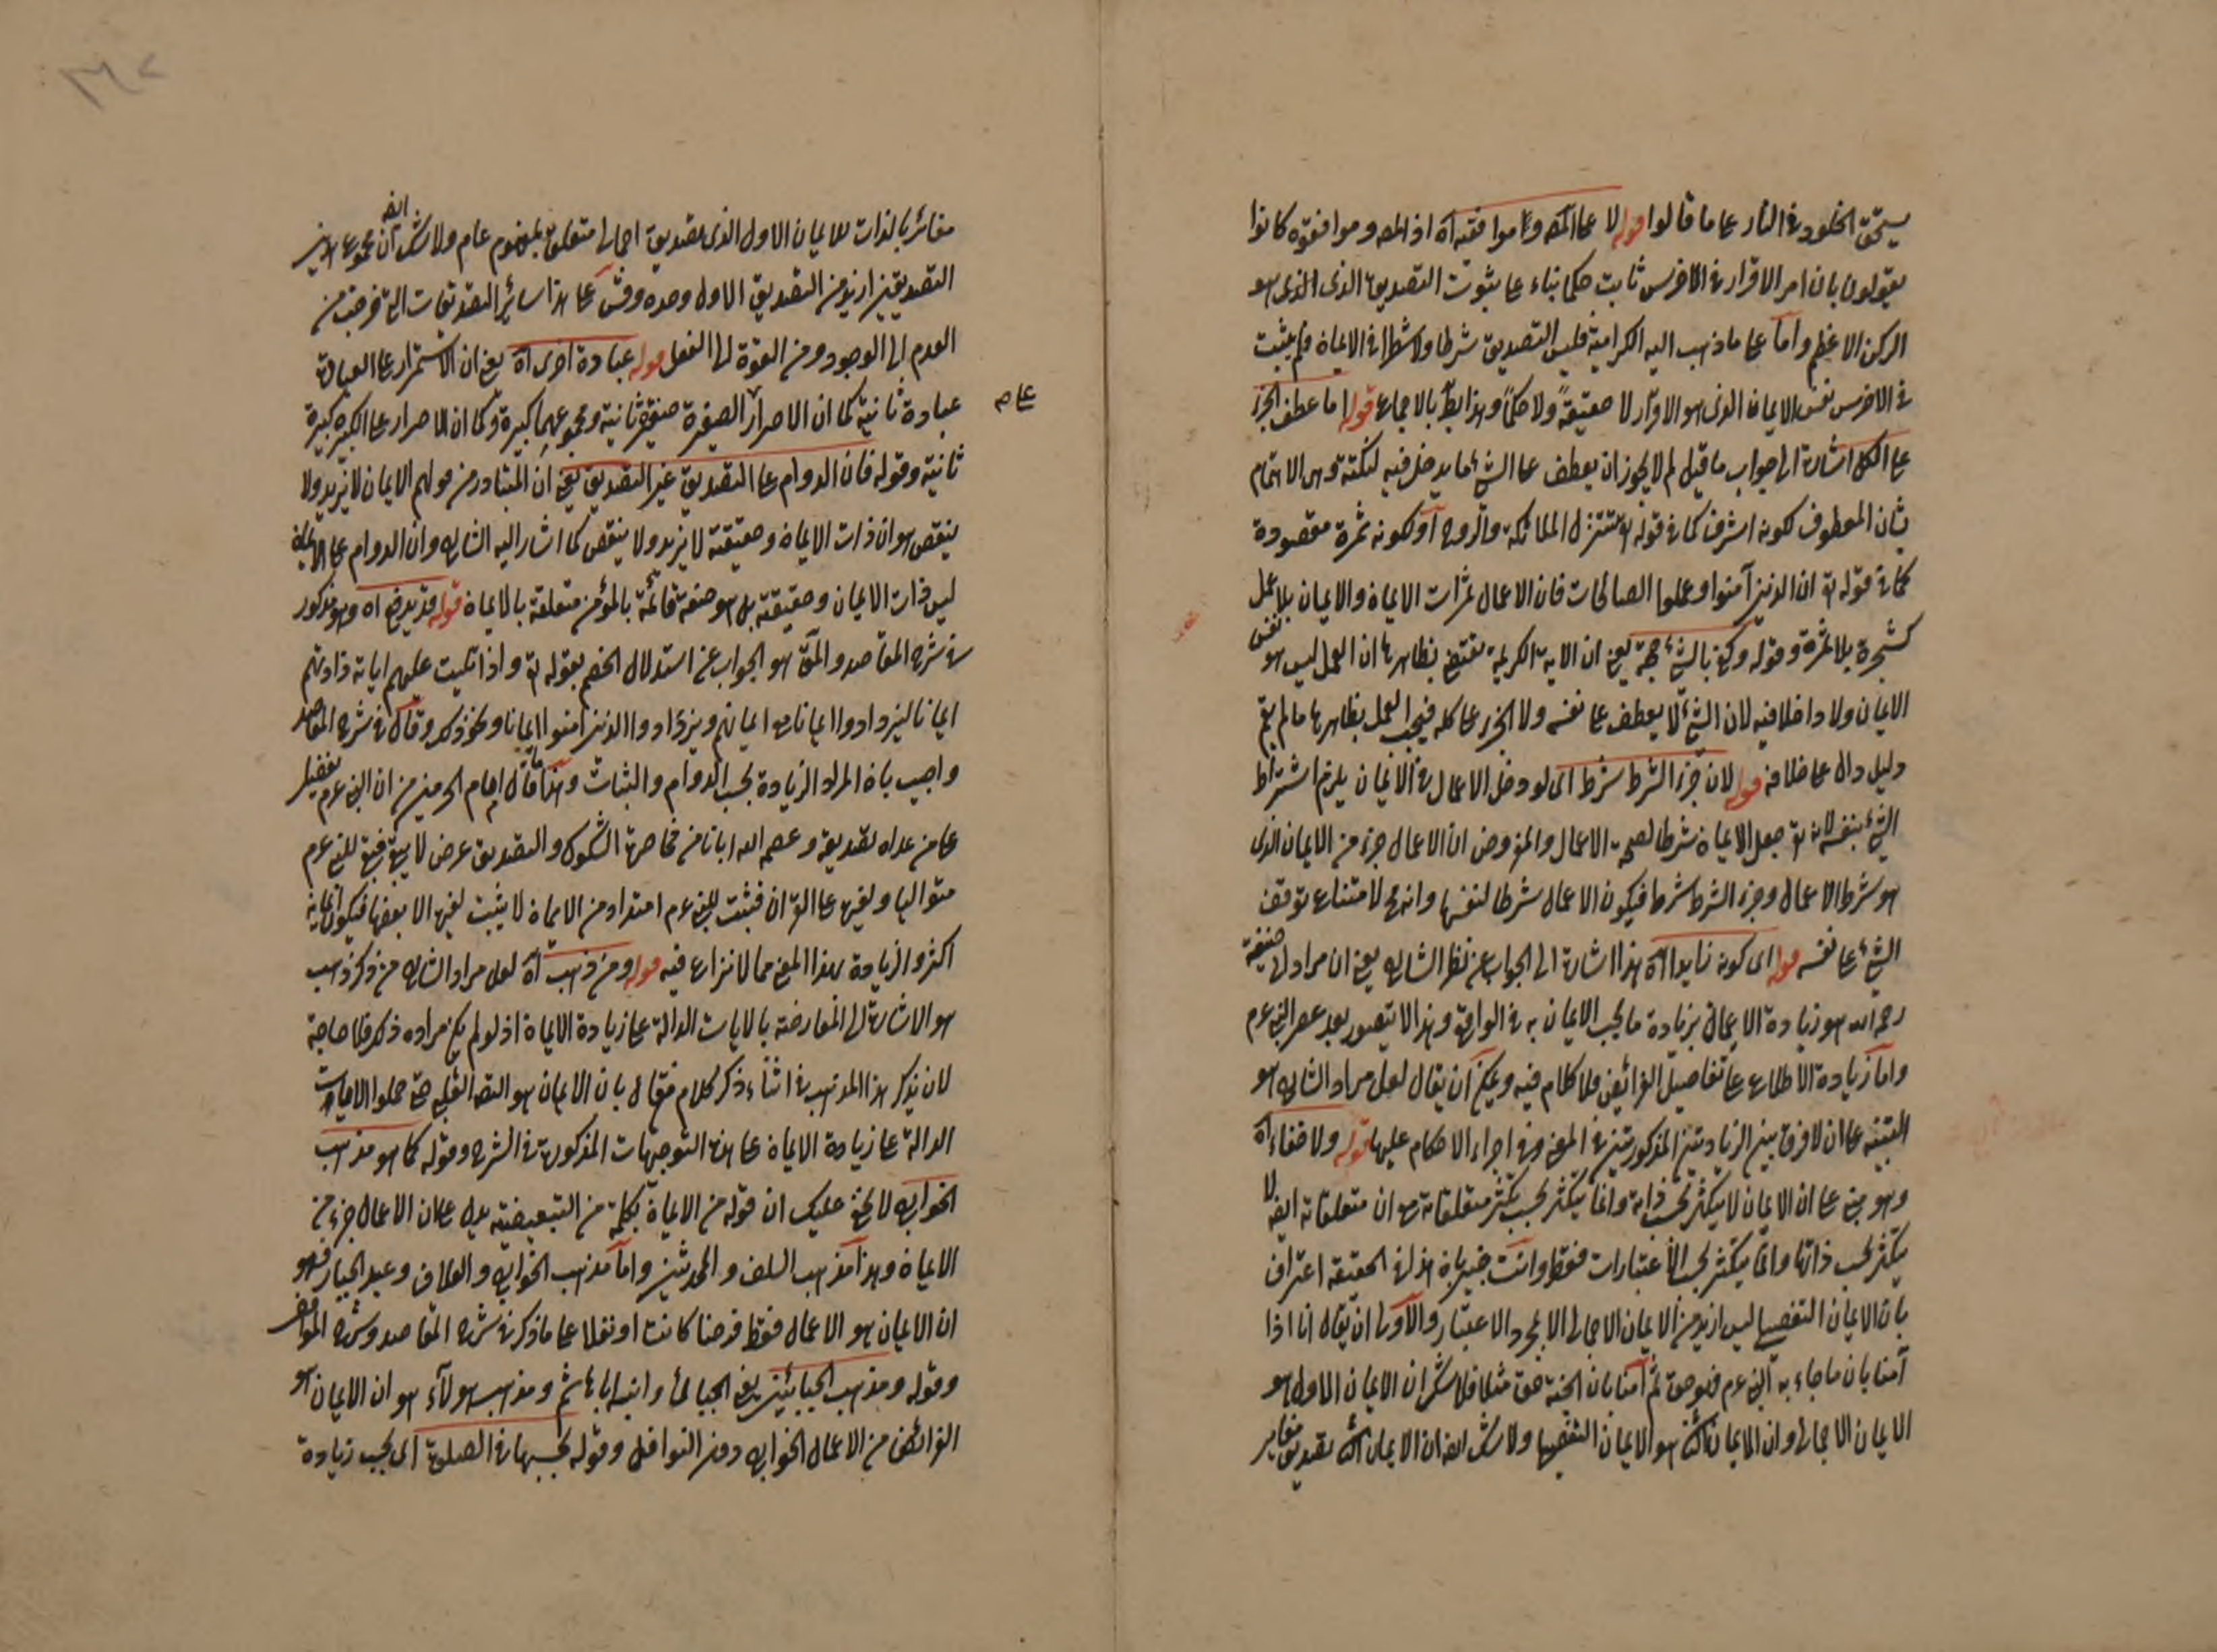 يستحق الخلود في النار على ما قالوا قوله لا على المص وعلى موافقيه اه اذ المص وموافقوه كانوا
يقولون بان امر الاقرار في الاخرس ثابت حكما بناء على ثبوت التصديق الذى الذى هو
الركن الاعظم واما على ما ذهب اليه الكرامية فليس التصديق شرطا ولا شطرا في الايمان فلم يثبت
في الاخرس نفس الايمان الذى هو الاقرار لا حقيقةً ولا حكماً وهذا بط بالاجماع قوله اما عطف الجزء
على الكل اشارة الى جواب ما قيل لم لا يجوز ان يعطف على الشئ ما يدخل فيه لنكتة وهى الاهتمام
بشان المعطوف لكونه اشرف كما في قوله تع تتنزل الملائكة والروح او لكونه ثمرة مقصودة
كما في قوله تع ان الذين آمنوا وعملوا الصالحات فان الاعمال ثمرات الايمان والايمان بلا عمل
كشجرة بلا ثمرة وقوله وكفى بالشئ حجة يعنى ان الاية الكريمة تقتضى بظاهرها ان العمل ليس هو نفس
الايمان ولا داخلا فيه لان الشئ لا يعطف على نفسه ولا الجزء على كله فيجب العمل بظاهرها ما لم يقم
دليل دال على خلافه قوله لان جزء الشرط شرط اى لو دخل الاعمال في الايمان يلزم اشتراط
الشئ بنفسه لانه تع جعل الايمان شرطا لصحة الاعمال والمفروض ان الاعمال جزء من الايمان الذى
هو شرط الاعمال وجزء الشرط شرط فيكون الاعمال شرطا لنفسها وانه مح لامتناع توقف
الشئ على نفسه قوله اى كونه زايدا اه هذا اشارة الى الجواب عن نظر الشارح يعنى ان مراد ابى حنيفة
رحمه الله هو زيادة الايمان بزيادة ما يجب الايمان به في الواقع وهذا لا يتصور بعد عصر النبى عم
واما زيادة الاطلاع على تفاصيل الفرائض فلا كلام فيه ويمكن ان يقال لعل مراد الشارح هو
التنبيه على ان لا فرق بين الزيادتين المذكورتين في المعنى وفى اجراء الاحكام عليها قوله ولا خفاء اه
وهو مبنى على ان الايمان لا يتكثر بحسب ذاته وانما يتكثر بحسب تكثر متعلقاته مع ان متعلقاته ايضا لا
يتكثر بحسب ذاتها وانما يتكثر بحسب الاعتبارات فقط وانت خبير بان هذا في الحقيقة اعتراف
بان الايمان التفصيلى ليس ازيد من الايمان الاجمالى الا بمجرد الاعتبار والاولى ان يقال انا اذا
آمنا بان ما جاء به النبى عم فهو حق ثم آمنا بان الجنة حق مثلا فلا شك ان الايمان الاول هو
الايمان الاجمالى وان الايمان الثانى هو الايمان التفصيلى ولا شك ايضا ان الايمان الثانى تصديق مغاير
مغائر بالذات للايمان الاول الذى تصديق اجمالى متعلق بمفهوم عام ولا شك ايضا ان مجموع هذين
التصديقين ازيد من التصديق الاول وحده وقس على هذا سائر التصديقات التى خرجت من
العدم الى الوجود ومن القوة الى الفعل قوله عبادة اخرى اه يعنى ان الاستمرار على العبادة
عبادة ثانية كما ان الاصرار الصغيرة صغيرة ثانية ومجموعهما كبيرة وكما ان الاصرار على الكبيرة كبيرة
على
ثانية وقوله فان الدوام على التصديق غير التصديق يعنى ان المتبادر من قولهم الايمان لا يزيد ولا
ينقص هو ان ذات الايمان وحقيقته لا يزيد ولا ينقص كما اشار اليه الشارح وان الدوام على الايمان
ليس ذات الايمان وحقيقته بل هو صفة قائمة بالمؤمن متعلقة بالايمان قوله قد يدفع اه وهو مذكور
في شرح المقاصد والمق هو الجواب عن استدلال الخصم بقوله تع واذا تليت عليهم اياته زادتهم
ايمانا ليزدادوا ايمانا مع ايمانهم ويزداد والذين آمنوا ايمانا ونحو ذلك وقال في شرح المقاصد
واجيب بان المراد الزيادة بحسب الدوام والثبات وهذا ما قال امام الحرمين من ان النبى عم تفضيل
على من عداه تصديقه وعصمه الله ايانا من مخامرة الشكوك والتصديق عرض لا يبقى فيقع للنبى عم
متواليا ولغيره على الفترات فثبت للنبى عم اعداد من الايمان لا يثبت لغيره الا بعضها فيكون ايمانه
اكثر والزيادة بهذا المعنى مما لا نزاع فيه قوله ومن ذهب اه لعل مراد الشارح من ذكر ذهب
هو الاشارة الى المعارضة بالايات الدالة على زيادة الايمان اذ لو لم يكن مراده ذلك فلا حاجة
لان يذكر هذا المذهب في اثناء ذكر كلام من قال بان الايمان هو التصديق القلبى حتى حملوا الايات
الدالة على زيادة الايمان على هذه التوجيهات المذكورة في الشرح وقوله كما هو مذهب
الخوارج لا يخفى عليك ان قوله من الايمان بكلمة من التبعيضية يدل على ان الاعمال جزء من
الايمان وهذا مذهب السلف والمحدثين واما مذهب الخوارج والعلاف وعبد الجبار فهو
ان الايمان هو الاعمال فقط فرضا كانت او نفلا على ما ذكر في شرح المقاصد وشرح المواقف
وقوله ومذهب الجبائيين يعنى الجبائى وابنه ابا هاشم ومذهب هولآء هو ان الايمان هو
الفرائض من الاعمال الخوارج دون النوافل وقوله بحسبها في الصلوة اى بحسب زيادة